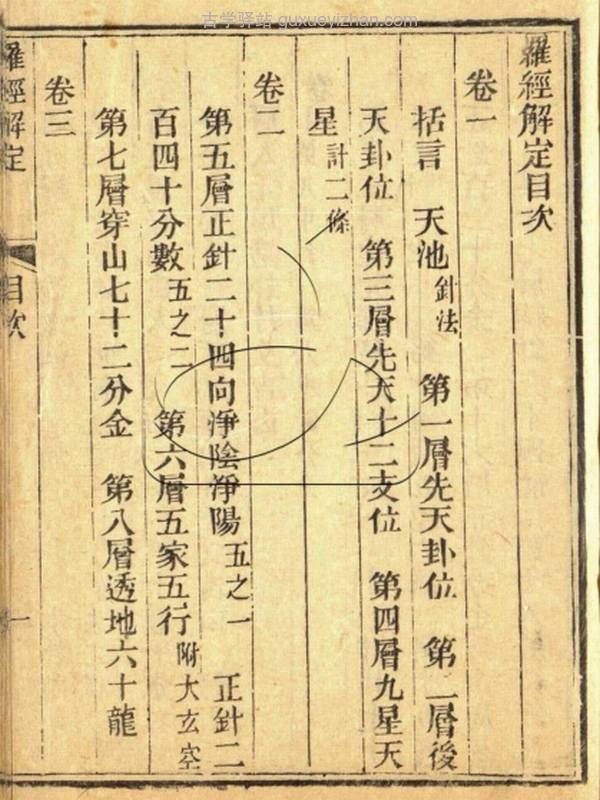 古学驿站 guxueyizhan.com
羅經解定目次
卷一
括言 天池 針法 第一層先天卦位 第二層後
天卦位 第三層先天十二支位 第四層九星天
星 計二條
卷二
第五層正針二十四向淨陰淨陽 五之一 正針二
百四十分數 五之二 第六層五家五行 附大玄空
第七層穿山七十二分金 第八層透地六十龍
卷三
羅經解定 目次 一